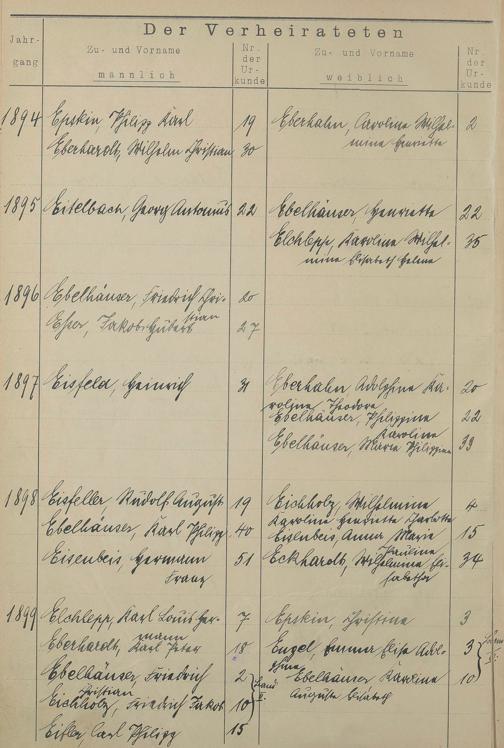 Der Verheirateten
Jahr-
gang
Zu- und Vorname
männlich
Nr.
der
Ur-
kunde
Zu- und Vorname
weiblich
Nr.
der
Ur-
kunde
1894 Epskin, Philipp Karl 19 Eberhahn, Caroline Wilhel- 2
mine Henriette
Eberhardt, Wilhelm Christian 30
1895 Eitelbach, Georg Antonius 22 Ebelhäuser, Henriette 22
Elchlepp, Karoline Wilhel- 35
mine Elisabeth Helene
1896 Ebelhäuser, Friedrich Chri- 20
stian
Eher, Jakob Hubert 27
1897 Eisfeld, Heinrich 31 Eberhahn Adolphine Ka- 20
roline Theodore
Ebelhäuser, Philippine 22
Karoline
Ebelhäuser, Maria Philippine 33
1898 Eisfeller, Rudolf August 19 Eichholz, Wilhelmine 4
Karoline Henriette Charlotte
Ebelhäuser, Karl Philipp 40 Eisenbeis, Anna Marie 15
Pauline
Eisenbeis, Hermann 51 Eckhardt, Wilhelmine Eli- 34
Franz sabetha
1899 Elchlepp, Karl Louis Her- 7 Epskin, Christine 3
mann
Eberhardt, Karl Peter 18 Engel, Emma Elise Adol- 3
phine
Ebelhäuser, Friedrich 2 Ebelhäuser Karoline 10
Christian Auguste Elisabeth
Eichholz, Friedrich Jakob 10
Eifler, Carl Philipp 15